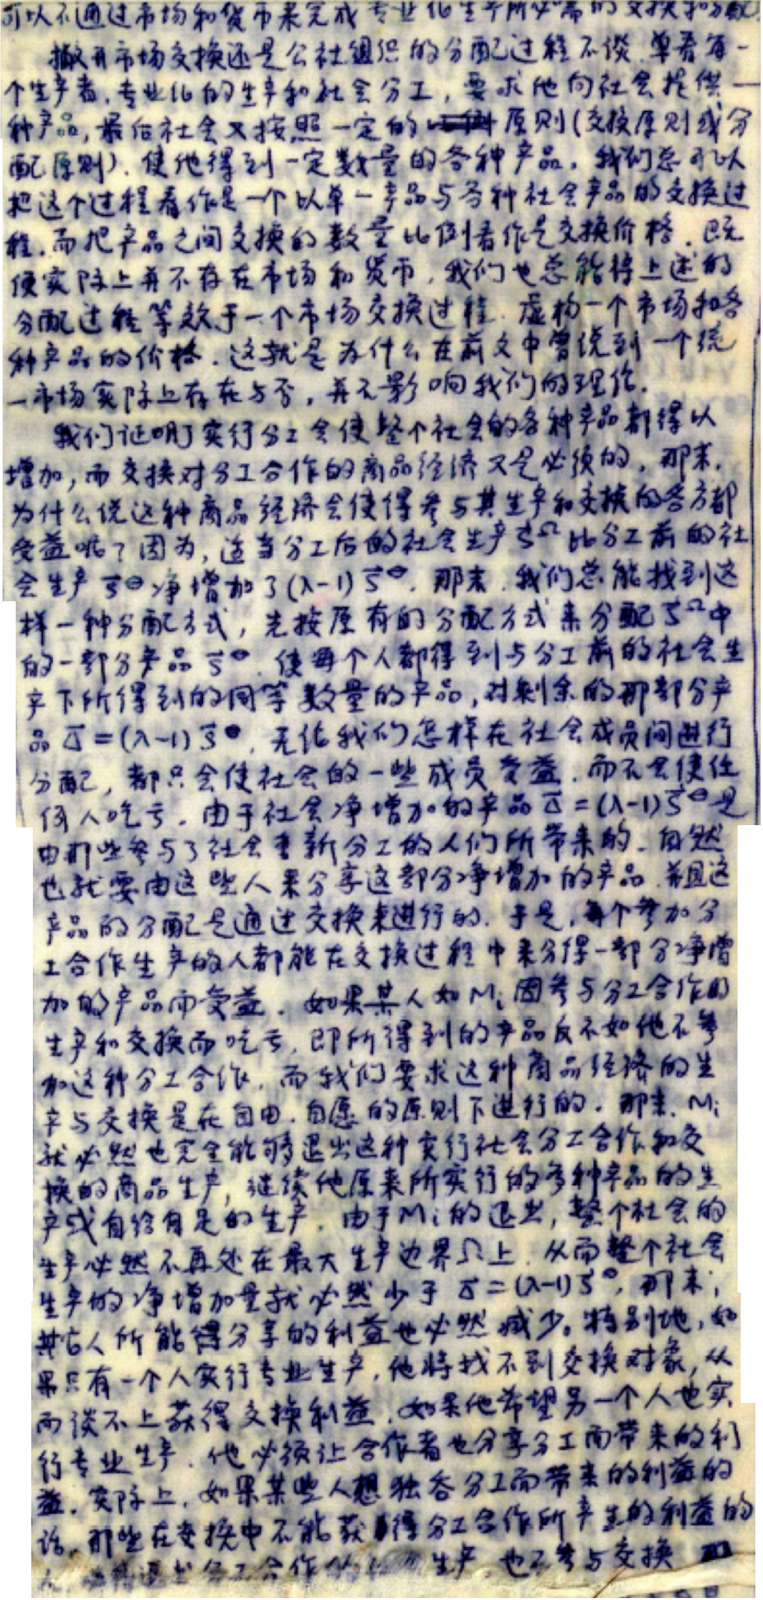 可以不通过市场和货币来完成专业化生产所必需的交换和分配.
撇开市场交换还是公社组织的分配过程不谈.单看每一
个生产者.专业化的生产和社会分工,要求他向社会提供一
种产品,最后社会又按照一定的原则(交换原则或分
配原则).使他得到一定数量的各种产品.我们总可以
把这个过程看作是一个以单一产品与各种社会产品的交换过
程.而把产品之间交换的数量比例看作是交换价格.既
使实际上并不存在市场和货币,我们也总能将上述的
分配过程等效于一个市场交换过程.虚构一个市场和各
种产品的价格.这就是为什么在前文中曾说到一个统
一市场实际上存在与否,并不影响我们的理论.
我们证明了实行分工会使整个社会的各种产品都得以
增加,而交换对分工合作的商品经济又是必须的.那末.
为什么说这种商品经济会使得参与其生产和交换的各方都
受益呢?因为,适当分工后的社会生产S^Ω比分工前的社
会生产S^⊖净增加了(λ-1)S^⊖.那末.我们总能找到这
样一种分配方式,先按原有的分配方式来分配S^Ω中
的一部分产品S^⊖.使每个人都得到与分工前的社会生
产下所得到的同等数量的产品,对剩余的那部分产
品Δ=(λ-1)S^⊖,无论我们怎样在社会成员间进行
分配,都只会使社会的一些成员受益.而不会使任
何人吃亏.由于社会净增加的产品Δ=(λ-1)S^⊖是
由那些参与了社会重新分工的人们所带来的.自然
也就要由这些人来分享这部分净增加的产品.并且这
产品的分配是通过交换来进行的.于是,每个参加分
工合作生产的人都能在交换过程中来分得一部分净增
加的产品而受益.如果某人如Mi因参与分工合作的
生产和交换而吃亏,即所得到的产品反不如他不参
加这种分工合作.而我们要求这种商品经济的生
产与交换是在自由.自愿的原则下进行的.那末.Mi
就必然也完全能够退出这种实行社会分工合作和交
换的商品生产,继续他原来所实行的多种产品的生
产或自给自足的生产.由于Mi的退出,整个社会的
生产必然不再处在最大生产边界Ω上.从而整个社会
生产的净增加量就必然少于Δ=(λ-1)S^⊖,那末,
其它人所能得分享的利益也必然减少。特别地,如
果只有一个人实行专业生产,他将找不到交换对象,从
而谈不上获得交换利益.如果他希望另一个人也实
行专业生产.他必须让合作者也分享分工而带来的利
益.实际上,如果某些人想独吞分工而带来的利益的
话.那些在交换中不能获得分工合作所产生的利益的
退出分工合作的生产.也不参与交换